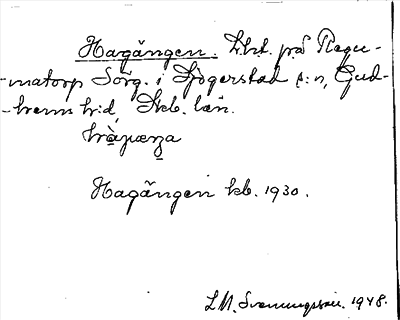 Hagängen. Lht. på Regu-
-matorp Sörg. i Sjögerstad s:n, Gud-
-hems h:d, Skb. län.
Hagängen kb. 1930.
L.M. Svenungsson. 1948.